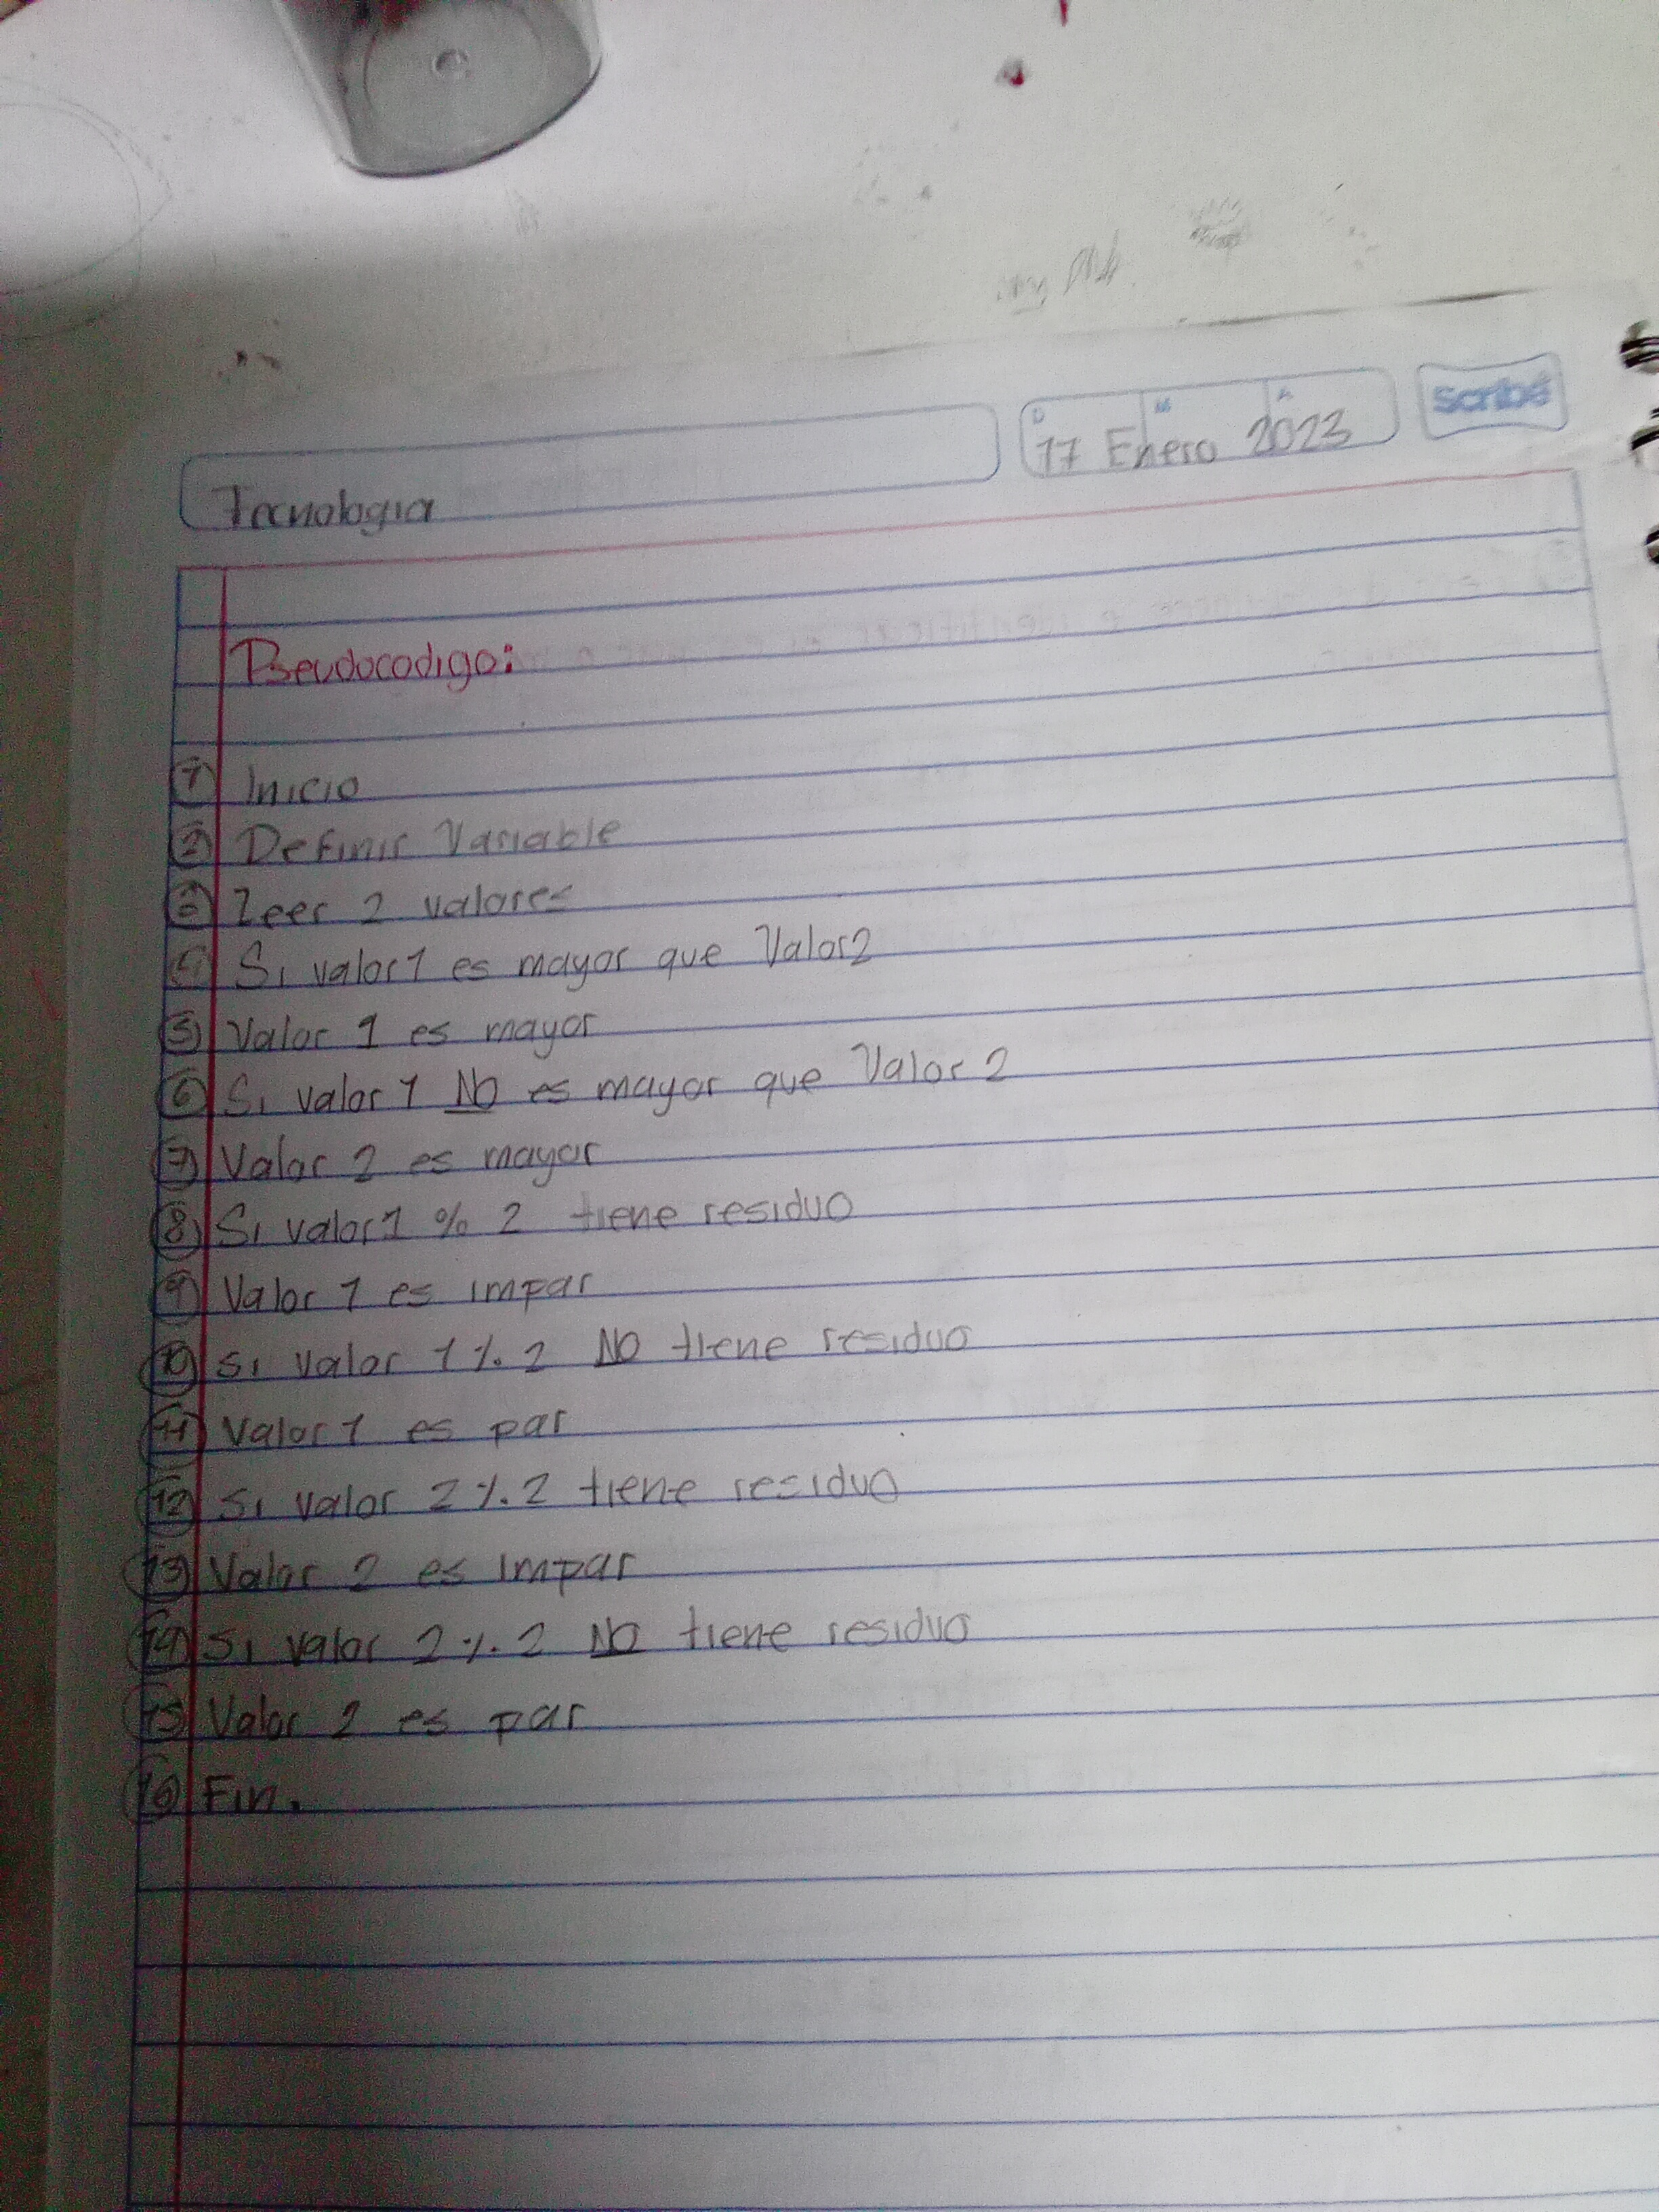 D M A
17 Enero 2023
scribe
Tecnologia
Pseudocodigo:
1 Inicio
2 Definir Variable
3 Leer 2 valores
4 Si valor 1 es mayor que Valor 2
5 Valor 1 es mayor
6 Si valor 1 NO es mayor que Valor 2
7 Valor 2 es mayor
8 Si valor 1 % 2 tiene residuo
9 Valor 1 es impar
10 si valor 1 % 2 NO tiene residuo
11 Valor 1 es par
12 si valor 2 % 2 tiene residuo
13 Valor 2 es impar
14 si valor 2 % 2 NO tiene residuo
15 Valor 2 es par
16 Fin.